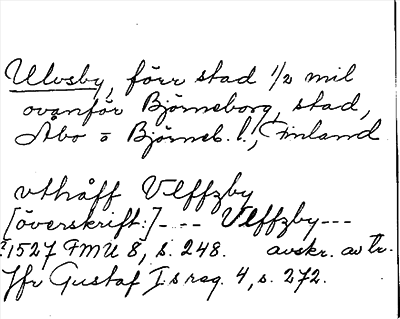 Ulvsby, förr stad 1/2 mil
ovanför Björneborg, stad,
Åbo o Björneb. l., Finland
vthåff Vlffzby
[överskrift:] --- Vlffzby---
1527 FMU 8, s. 248. avskr. av tr.
Jfr Gustaf I:s reg. 4, s. 272.